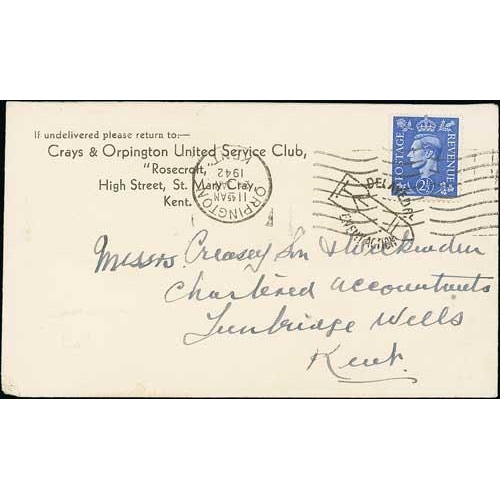 If undelivered please return to:—
Crays & Orpington United Service Club,
"Rosecroft,
High Street, St. Mary Cray,
Kent.
ORPINGTON
KENT
11 45 AM
1942
POSTAGE
REVENUE
2½
DELAYED BY
ENEMY ACTION
Messrs. Creasey Son & Wickenden
Chartered Accountants
Tunbridge Wells
Kent.